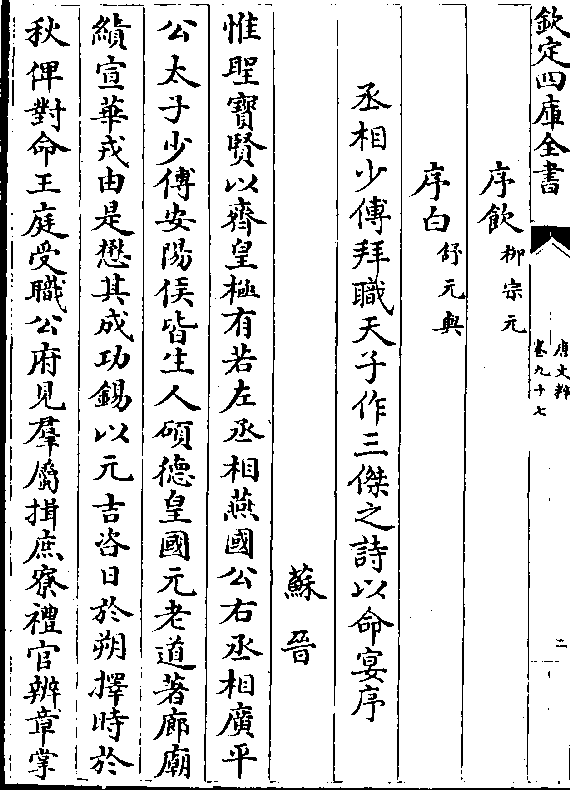 欽定四庫全書
唐文粹
卷九十七
二
序飲 柳宗元
序白 舒元輿
丞相少傅拜職天子作三傑之詩以命宴序
蘇晉
惟聖寶賢以齊皇極有若左丞相燕國公右丞相廣平
公太子少傅安陽侯皆生人碩德皇國元老道著廊廟
績宣華戎由是懋其成功錫以元吉咨日於朔擇時於
秋俾對命王庭受職公府見羣屬揖庶寮禮官辨章掌